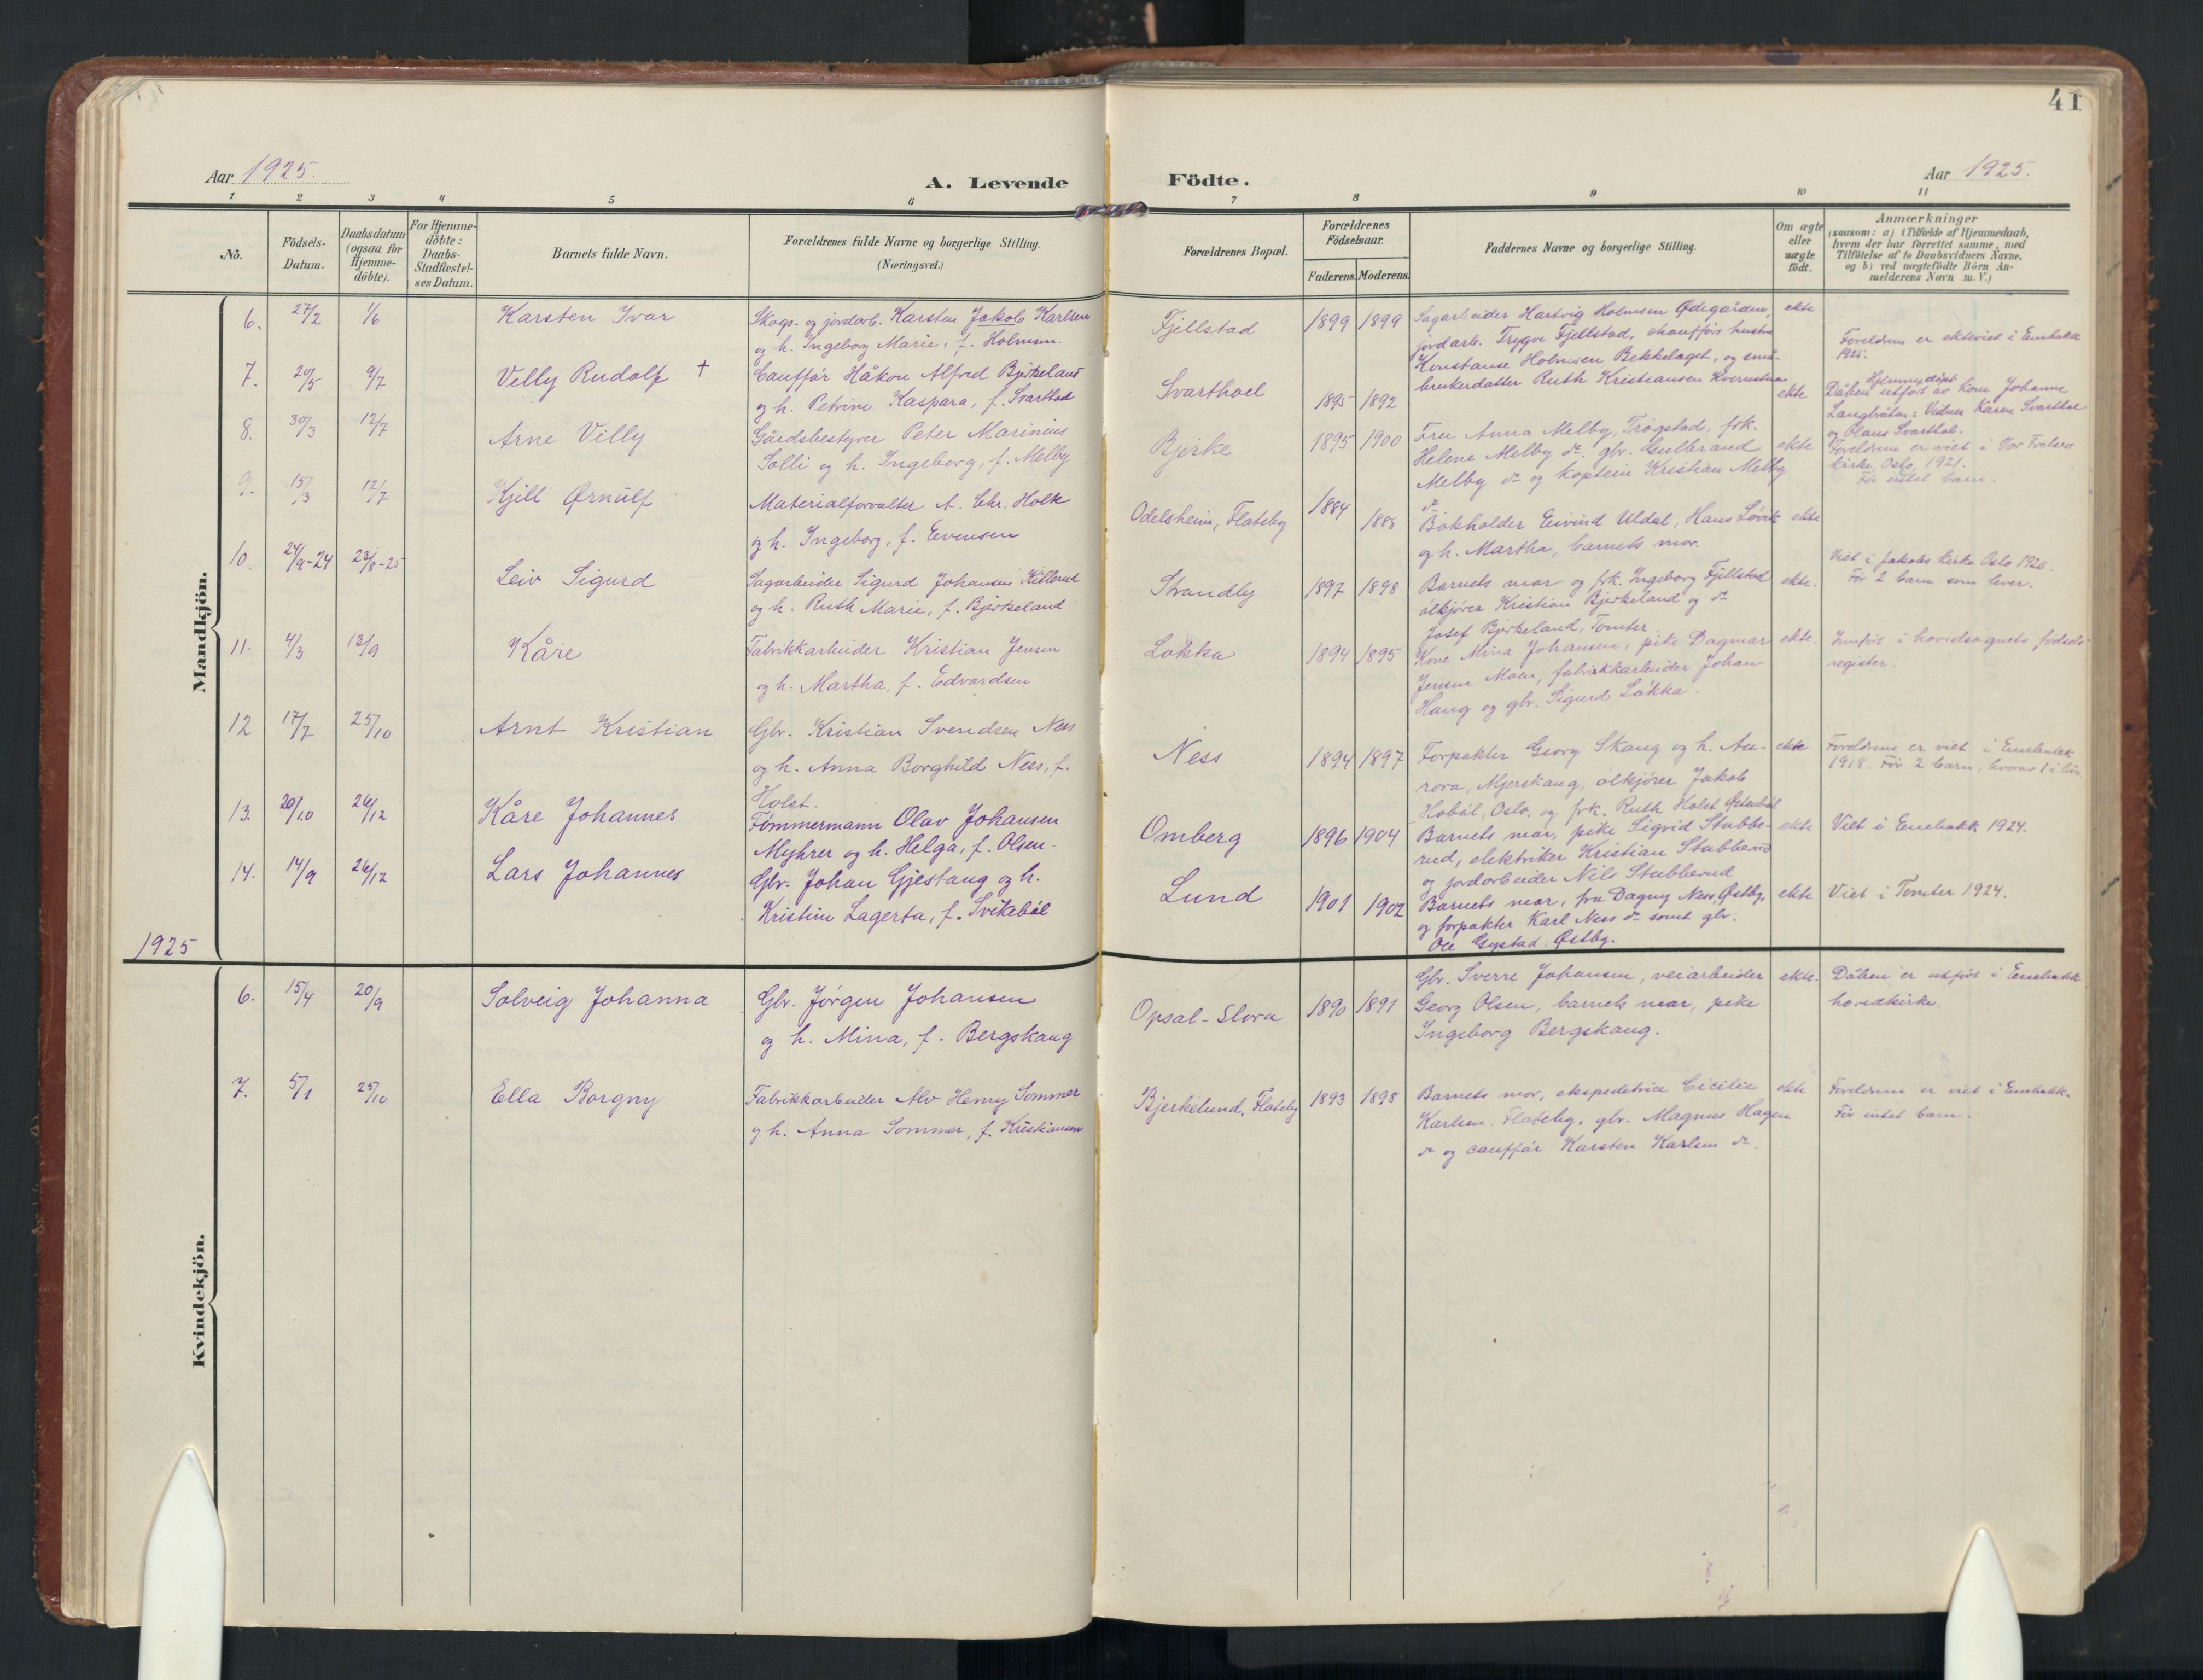 41
Aar 1925.
A. Levende Födte.
Aar 1925.
1 2 3 4 5 6 7 8 9 10 11
No.
Födsels-Datum.
Daabsdatum (ogsaa for Hjemme-döbte).
For Hjemme-döbte: Daabs-Stadfæstel-ses Datum.
Barnets fulde Navn.
Forældrenes fulde Navne og borgerlige Stilling.
(Næringsvei.)
Forældrenes Bopæl.
Forældrenes Födselsaar.
Faderens. Moderens.
Faddernes Navne og borgerlige Stilling.
Om ægte eller uægte födt.
Anmærkninger
(saasom: a) i Tilfælde af Hjemmedaab,
hvem der har forrettet samme, med
Tilföielse af to Daabsvidners Navne,
og b) ved uægtefödte Börn An-
melderens Navn m. V.)
Mandkjön.
6. 27/2 1/6 Karsten Ivar
Skogs- og jordarb. Karsten Jakob Karlsen
og h. Ingeborg Marie, f. Holmsen.
Fjellstad 1899 1899
Sagarbeider Hartvig Holmsen Ødegården,
jordarb. Trygve Fjellstad, chaufførs hustru
Konstanse Holmsen Bekkelaget, og små-
brukerdatter Ruth Kristiansen
ekte
Foreldrene er ekteviet i Enebakk
1925.
7. 20/5 9/7 Villy Rudolf +
Cauffør Håkon Alfred Bjerkeland
og h. Petrine Kaspara, f. Svarthol
Svarthoel 1895 1892 ekte
Hjemmedøpt
Dåben utført av kone Johanne
Langbråten: Vidner Karen Svarthol
og Olaus Svarthol.
8. 30/3 12/7 Arne Villy
Gårdsbestyrer Peter Marinius
Solli og h. Ingeborg, f. Melby
Bjerke 1895 1900
Fru Anna Melby, Trøgstad, frk.
Helene Melby do. gbr. Gulbrand
Melby do og kaptein Kristian Melby
do
ekte
Foreldrene er viet i Vor Frelsers
kirke, Oslo, 1921.
Før intet barn.
9. 15/3 12/7 Kjell Ørnulf
Materialforvalter A. Chr. Holk
og h. Ingeborg, f. Evensen
Odelsheim, Flateby 1884 1888
Bokholder Eivind Uldal, Hans Løvik
og h. Martha, barnets mor.
ekte
10. 24/9-24 23/8-25 Leiv Sigurd
Sagarbeider Sigurd Johansen Killerud
og h. Ruth Marie, f. Bjerkeland
Strandby 1897 1898
Barnets mor og frk. Ingeborg Fjellstad
ølkjører Kristian Bjerkeland og do
Josef Bjerkeland, Tomter
ekte.
Viet i Jakobs kirke Oslo 1920.
Før 2 barn som lever.
11. 4/3 13/9 Kåre
Fabrikkarbeider Kristian Jensen
og h. Martha, f. Edvardsen
Løkka 1894 1895
Kone Mina Johansen, pike Dagmar
Jensen Moen, fabrikkarbeider Johan
Haug og gbr. Sigurd Løkka.
ekte.
Innført i hovedsognets fødsels-
register.
12 17/7 25/10 Arnt Kristian
Gbr. Kristian Svendsen Ness
og h. Anna Borghild Ness, f.
Holst.
Ness 1894 1897
Forpakter Georg Skaug og h. Au-
rora, Mjerskaug, ølkjører Jakob
Hobøl, Oslo, og frk. Ruth Holst
ekte
Foreldrene er viet i Enebakk
1918. Før 2 barn, hvorav 1 i live
13. 20/10 26/12 Kåre Johannes
Tømmermann Olav Johansen
Myhrer og h. Helga, f. Olsen.
Omberg 1896 1904
Barnets mor, pike Sigrid Stubbe-
rud, elektriker Kristian Stubberud
og jordarbeider Nils Stubberud
ekte
Viet i Enebakk 1924.
14. 14/9 26/12 Lars Johannes
Gbr. Johan Gjestaug og h.
Kristine Lagerta, f. Svikebøl
Lund 1901 1902
Barnets mor, fru Dagny Ness, Østby,
og forpakter Karl Ness do samt gbr.
Ole Gystad. Østby.
ekte
Viet i Tomter 1924.
1925
Kvindekjön.
6. 15/4 20/9 Solveig Johanna
Gbr. Jørgen Johansen
og h. Mina, f. Bergskaug
Opsal-Slora 1890 1891
Gbr. Sverre Johansen, veiarbeider
Georg Olsen, barnets mor, pike
Ingeborg Bergskaug.
ekte.
Dåben er utført i Enebakk
hovedkirke.
7. 5/1 25/10 Ella Borgny
Fabrikkarbeider Alv Henry Sommer
og h. Anna Sommer, f. Kristiansen
Bjerkelund, Flateby 1893 1898
Barnets mor, ekspeditrice Cicilie
Karlsen, Flateby, gbr. Magnus Hagen
do og cauffør Karsten Karlsen do.
ekte
Foreldrene er viet i Enebakk.
Før intet barn.